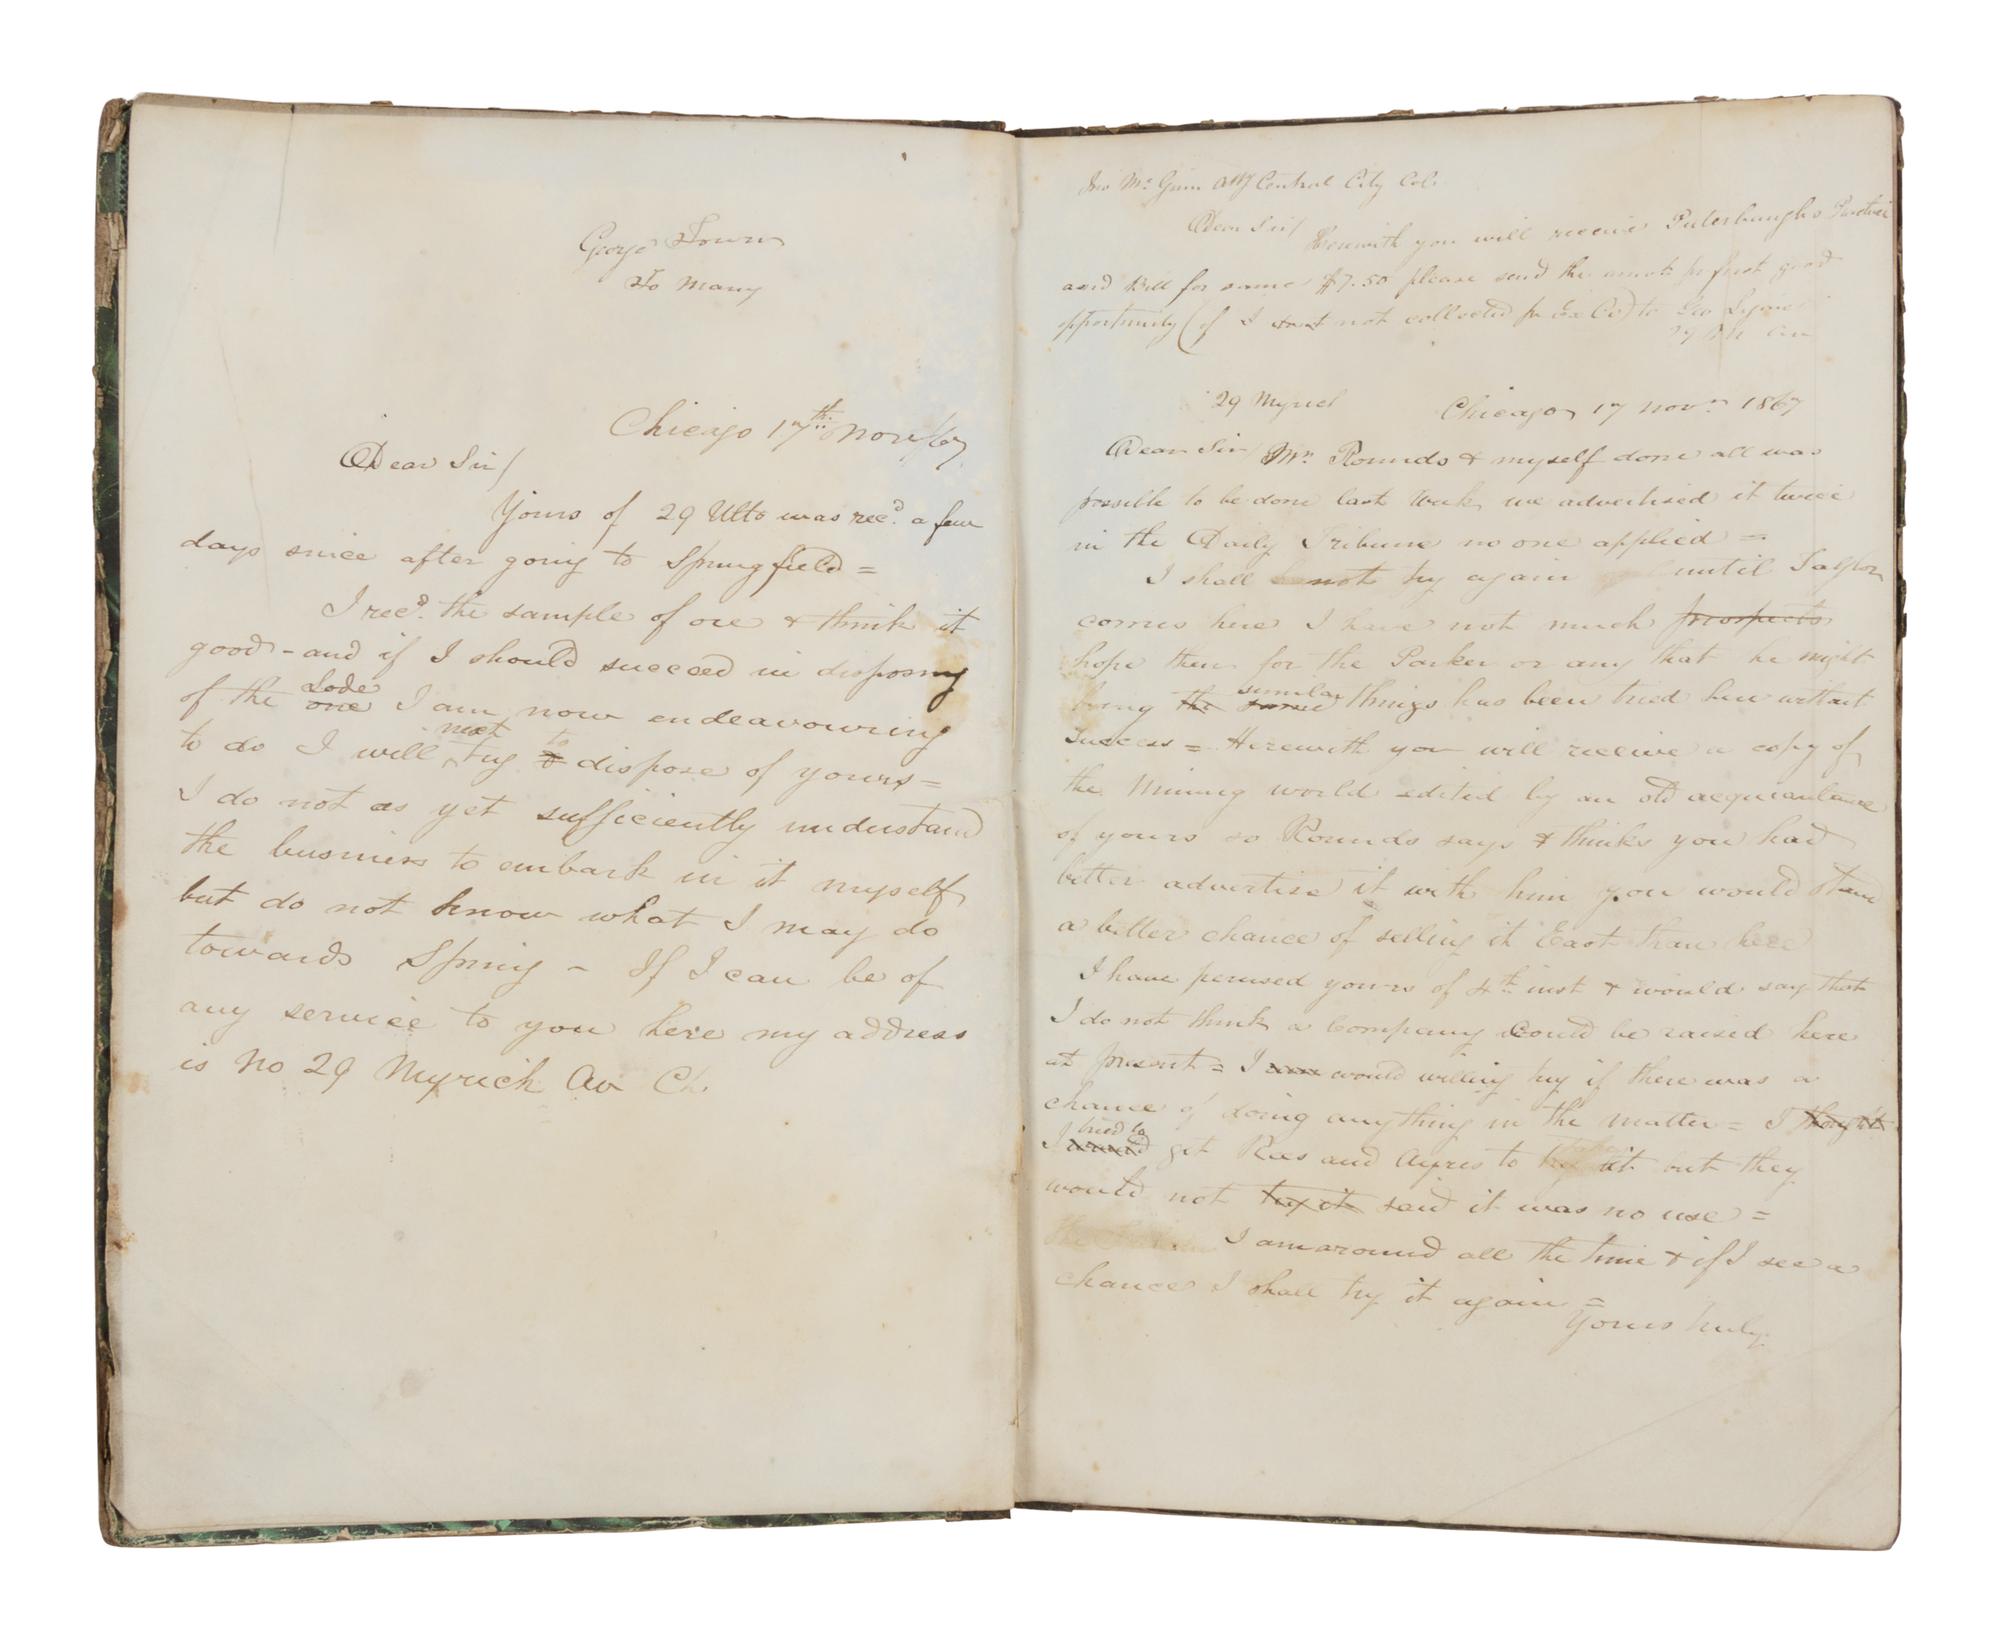 George Town
To Many
Chicago 17th Nov/67
Dear Sir/
Yours of 29 Ulto was recd. a few
days since after going to Springfield =
I recd. the sample of ore & think it
good - and if I should succeed in disposing
of the one Lode I am now endeavouring
to do I will next try & to dispose of yours =
I do not as yet sufficiently understand
the business to embark in it myself
but do not know what I may do
towards Spring - If I can be of
any service to you here my address
is No 29 Myrick Av Ch.
Jno Mc Ginn Atty Central City Col.
Dear Sir/ Herewith you will receive Puterbaugh's
and Bill for same $7.50 please send the amot. pr first good
opportunity (if I not collected pr Ex Co) to Geo
29 Av
29 Myrick Chicago 17 Novr 1867
Dear Sir/ Mr. Rounds & myself done all was
possible to be done last Week, we advertised it twice
in the Daily Tribune no one applied =
I shall not try again until
comes here I have not much prospects
hope then for the Parker or any that he might
bring the same similar things has been tried here without
Success = Herewith you will receive a copy of
the Mining world edited by an old acquaintance
of yours so Rounds says & thinks you had
better advertise it with him you would stand
a better chance of selling it East than here
I have perused yours of 4th inst & would say that
I do not think a Company Could be raised here
at present = I would willing try if there was a
chance of doing anything in the matter = I thought
I tried to get Rees and Ayres to it but they
would not try it said it was no use =
I am around all the time & if I see a
chance I shall try it again =
Yours truly